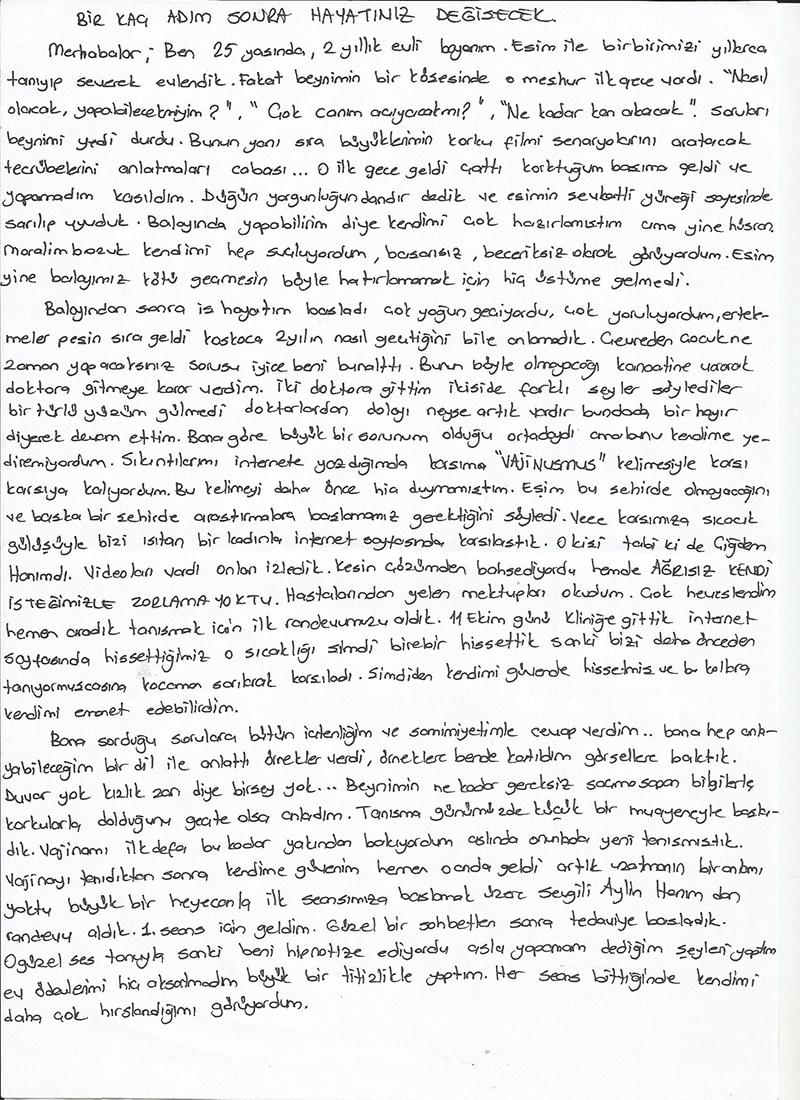 BİR KAÇ ADIM SONRA HAYATINIZ DEĞİŞECEK.
Merhabalar; Ben 25 yaşında, 2 yıllık evli bayanım. Eşim ile birbirimizi yıllarca
tanıyıp severek evlendik. Fakat beynimin bir köşesinde o meşhur ilk gece vardı. "Nasıl
olacak, yapabilecekmiyim?", "Çok canım acıyacakmı?", "Ne kadar kan akacak". soruları
beynimi yedi durdu. Bunun yanı sıra büyüklerimin korku filmi senaryolarını aratacak
tecrübelerini anlatmaları cabası... O ilk gece geldi çattı korktuğum başıma geldi ve
yapamadım kasıldım. Düğün yorgunluğundandır dedik ve eşimin şevkatli yüreği sayesinde
sarılıp uyuduk. Balayında yapabilirim diye kendimi çok hazırlamıştım ama yine hüsran.
Moralim bozuk kendimi hep suçluyordum, başarısız, beceriksiz olarak görüyordum. Eşim
yine balayımız kötü geçmesin böyle hatırlamamak için hiç üstüme gelmedi.
Balayından sonra iş hayatım başladı çok yoğun geçiyordu, çok yoruluyordum, ertele-
meler peşin sıra geldi koskoca 2 yılın nasıl geçtiğini bile anlamadık. Çevreden çocuk ne
zaman yapacaksınız sorusu iyice beni bunalttı. Bunun böyle olmayacağı kanaatine vararak
doktora gitmeye karar verdim. İki doktora gittim ikiside farklı şeyler söylediler
bir türlü yüzüm gülmedi doktorlardan dolayı neyse artık vardır bundada bir hayır
diyerek devam ettim. Bana göre büyük bir sorunum olduğu ortadaydı ama bunu kendime ye-
diremiyordum. Sıkıntılarımı internete yazdığımda karşıma "VAJİNUSMUS" kelimesiyle karşı
karşıya kalıyordum. Bu kelimeyi daha önce hiç duymamıştım. Eşim bu şehirde olmayacağını
ve başka bir şehirde araştırmalara başlamamız gerektiğini söyledi. Veee karşımıza sıcacık
gülüşüyle bizi ısıtan bir kadınla internet sayfasında karşılaştık. O kişi tabi ki de Çiğdem
Hanımdı. Videoları vardı onları izledik. Kesin çözümden bahsediyordu hemde AĞRISIZ KENDİ
İSTEĞİMİZLE ZORLAMA YOKTU. Hastalarından gelen mektupları okudum. Çok heveslendim
hemen aradık tanışmak için ilk randevumuzu aldık. 11 Ekim günü kliniğe gittik internet
sayfasında hissettiğimiz o sıcaklığı şimdi birebir hissettik sanki bizi daha önceden
tanıyormuşcasına kocaman sarılarak karşıladı. Şimdiden kendimi güvende hissetmiş ve bu kalbra
kendimi emanet edebilirdim.
Bana sorduğu sorulara bütün içtenliğim ve samimiyetimle cevap verdim.. bana hep anla-
yabileceğim bir dil ile anlattı örnekler verdi, örneklere bende katıldım görsellere baktık.
Duvar yok kızlık zarı diye birşey yok... Beynimin ne kadar gereksiz saçma sapan bilgilerle
korkularla dolduğunu geçte olsa anladım. Tanışma günümüzde küçük bir muayeneyle başla-
dık. Vajinamı ilk defa bu kadar yakından bakıyordum aslında onunlada yeni tanışmıştık.
Vajinayı tanıdıktan sonra kendime güvenim hemen o anda geldi artık uzatmanın bir anlamı
yoktu büyük bir heyecanla ilk seansımıza başlamak üzere sevgili Aylin Hanım dan
randevu aldık. 1. seans için geldim. Güzel bir sohbetten sonra tedaviye başladık.
O güzel ses tonuyla sanki beni hipnotize ediyordu asla yapamam dediğim şeyleri yaptım
ev ödevlerimi hiç aksatmadım büyük bir titizlikle yaptım. Her seans bittiğinde kendimi
daha çok hırslandığımı görüyordum.